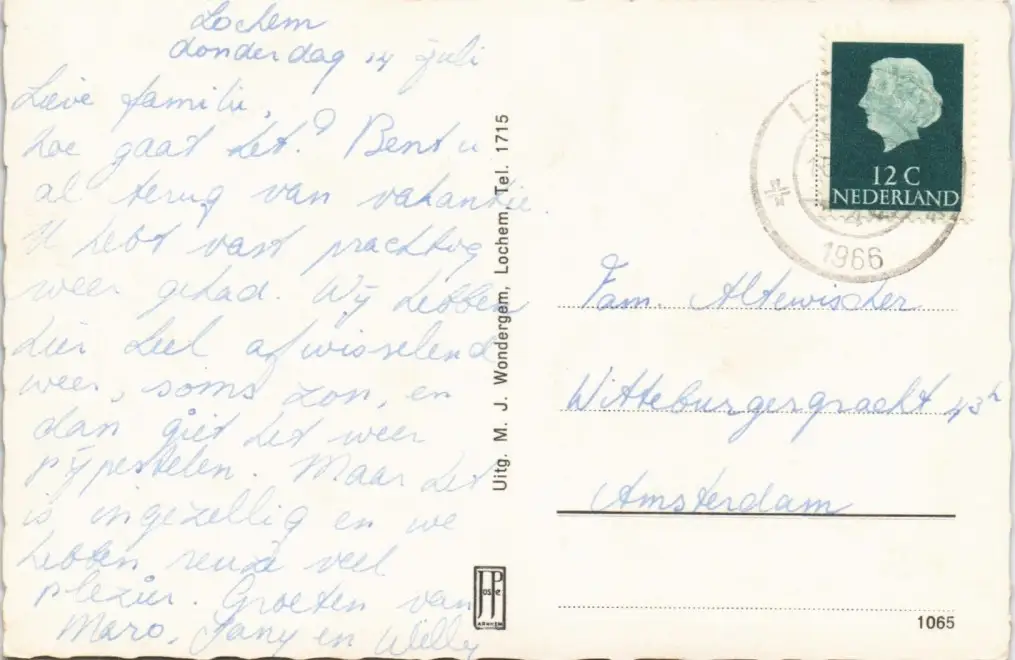 Lochem
donderdag 14 juli
Lieve familie,
hoe gaat het? Bent u
al terug van vakantie.
U hebt vast prachtig
weer gehad. Wij hebben
hier heel afwisselend
weer, soms zon, en
dan giet het weer
pijpestelen. Maar het
is ingezellig en we
hebben reuze veel
plezier. Groeten van
Maro, Jany en Willy
Uitg. M. J. Wondergem, Lochem, Tel. 1715
JosPe
ARNHEM
12 C
NEDERLAND
1966
Fam. Altewischer
Wittenburgergracht 43 h
Amsterdam
1065